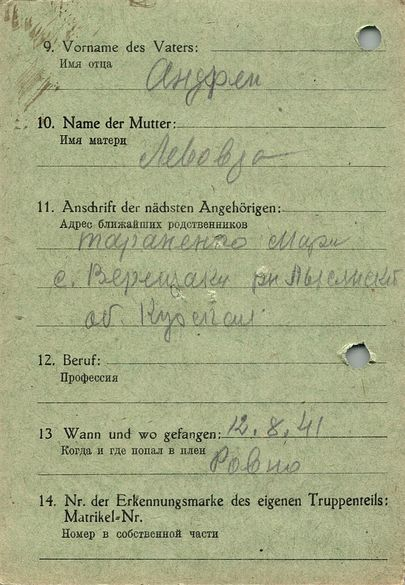 9. Vorname des Vaters:
Имя отца
Андреи
10. Name der Mutter:
Имя матери
11. Anschrift der nächsten Angehörigen:
Адрес ближайших родственников
тараненко Мари
с. Верешаки рн
об. Курская
12. Beruf:
Профессия
13 Wann und wo gefangen: 12.8.41
Когда и где попал в плен
Ровно
14. Nr. der Erkennungsmarke des eigenen Truppenteils:
Matrikel-Nr.
Номер в собственной части